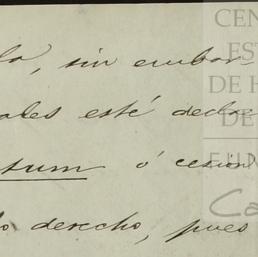 lo, sin embar-
ales esté decla-
tum ó cesión
lo derecho, pues
CEN
ES
DE H
DE
FUN
Ca